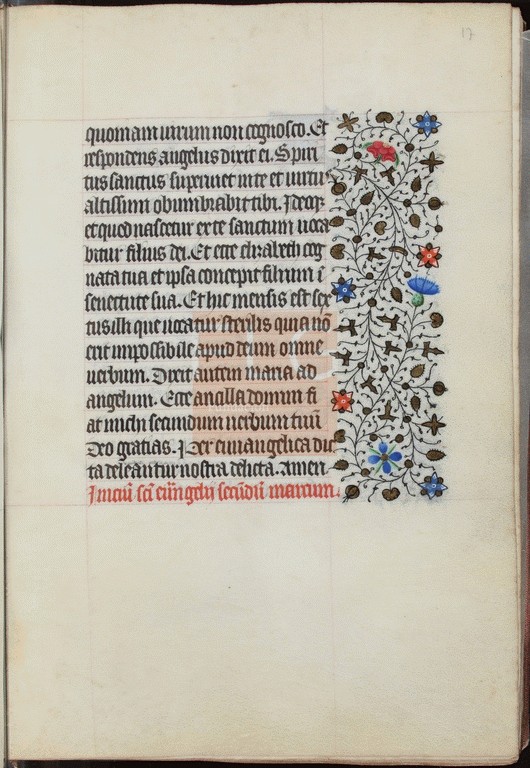 17
quoniam uirum non cognosco. Et
respondens angelus dixit ei. Spiri
tus sanctus superuiet in te et uirtus
altissimi obumbrabit tibi. Ideoq3
et quod nascetur ex te sanctum uoca
bitur filius dei. Et ecce elyzabeth cog
nata tua et ipsa concepit filium ī
senectute sua. Et hic mensis est sex
tus illi que uocatur sterilis quia nō
erit impossibile apud deum omne
uerbum. Dixit autem maria ad
angelum. Ecce ancilla domini fi
at michi secundum uerbum tuū
Deo gratias. Per euuangelica dic
ta deleantur nostra delicta. Amen
Iniciū sci euāngelij secūdū marcum.